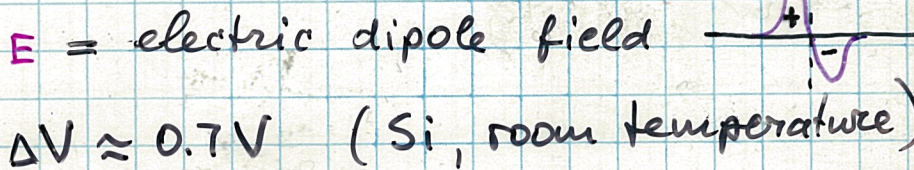 E = electric dipole field + -
ΔV ≈ 0.7V (Si, room temperature)